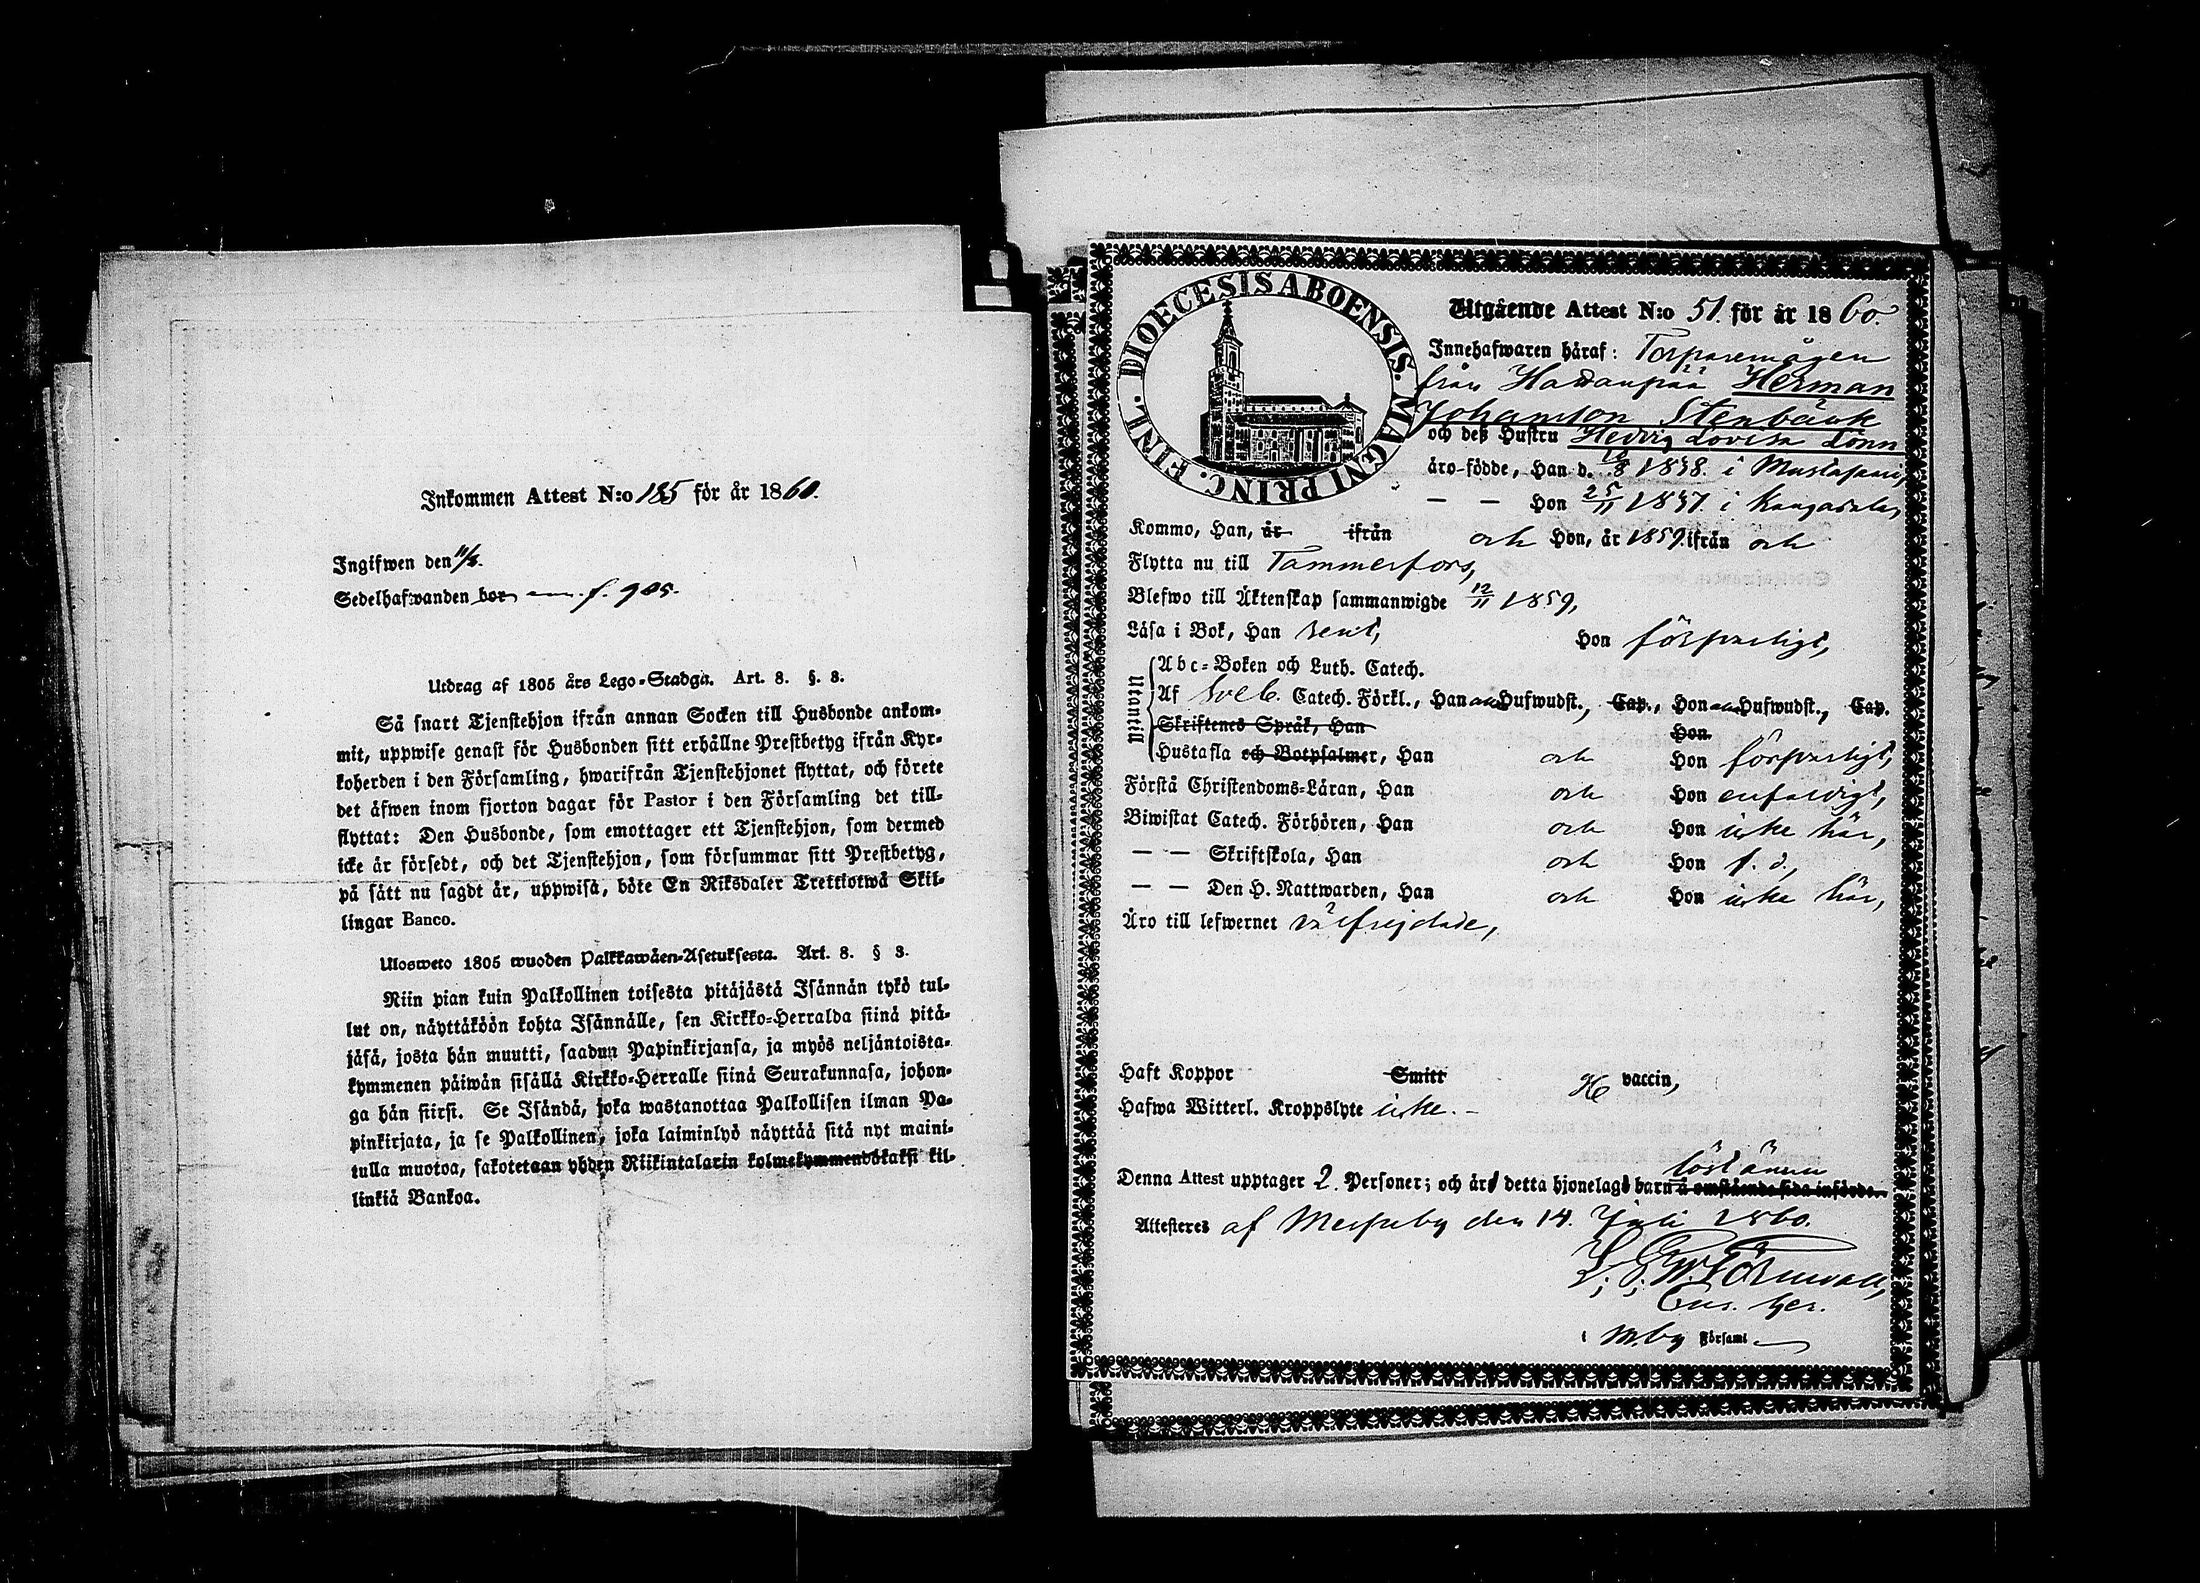 Inkommen Attest N:o 185 för år 1860.
Ingifwen den 11/8.
Sedelhafwanden bor f. 905.
Utdrag af 1805 års Lego-Stadga. Art. 8. §. 3.
Så snart Tjenstehjon ifrån annan Socken till Husbonde ankom-
mit, uppwise genast för Husbonden sitt erhållne Prestbetyg ifrån Kyr-
koherden i den Församling, hwarifrån Tjenstehjonet flyttat, och förete
det äfwen inom fjorton dagar för Pastor i den Församling det till-
flyttat: Den Husbonde, som emottager ett Tjenstehjon, som dermed
icke är försedt, och det Tjenstehjon, som försummar sitt Prestbetyg,
på sätt nu sagdt är, uppwisa, böte En Riksdaler Trettiotwå Skil-
lingar Banco.
Ulosweto 1805 wuoden Palkkawäen-Asetuksesta. Art. 8. § 3.
Niin pian kuin Palkollinen toisesta pitäjästä Isännän tykö tul-
lut on, näyttäköön kohta Isännälle, sen Kirkko-Herralda siinä pitä-
jäsä, josta hän muutti, saadun Papinkirjansa, ja myös neljäntoista-
kymmenen päiwän sisällä Kirkko-Herralle siinä Seurakunnasa, johon-
ga hän siirsi. Se Isändä, joka wastanottaa Palkollisen ilman Pa-
pinkirjata, ja se Palkollinen, joka laiminlyö näyttää sitä nyt maini-
tulla muotoa, sakotetaan yhden Riikintalarin kolmekymmendäkaksi kil-
linkiä Bankoa.
DIOECESIS ABOENSIS. MAGNI PRINC. FINL.
Utgående Attest N:o 51. för år 1860.
Innehafwaren häraf: Torparemågen
från Herman
Johansson Stenbäck
och deß Hustru Hedvig Lovisa Lönn
äro födde, Han d. 1838. i
— — Hon 25/11 1837. i Kangasala,
Kommo, Han, år ifrån och Hon, år 1859. ifrån och
Flytta nu till Tammerfors,
Blefwo till Äktenskap sammanwigde 12/11 1859,
Läsa i Bok, Han rent, Hon försvarligt,
Utantill
Abc-Boken och Luth. Catech.
Af Sveb. Catech. Förkl., Han alla Hufwudst., Cap., Hon alla Hufwudst., Cap.
Skriftenes Språk, Han Hon
Hustafla och Botpsalmer, Han och Hon försvarligt,
Förstå Christendoms-Läran, Han och Hon enfaldigt,
Biwistat Catech. Förhören, Han och Hon icke här,
— — Skriftskola, Han och Hon f. d.,
— — Den H. Nattwarden, Han och Hon icke här,
Äro till lefwernet välfrejdade,
Haft Koppor Smitt vaccin,
Hafwa Witterl. Kroppslyte icke. -
Denna Attest upptager 2. Personer; och äro detta hjonelags barn å omstående sida införde.
löst ännu
Attesteres af Messuby den 14. Juli 1860.
i M.by Församl